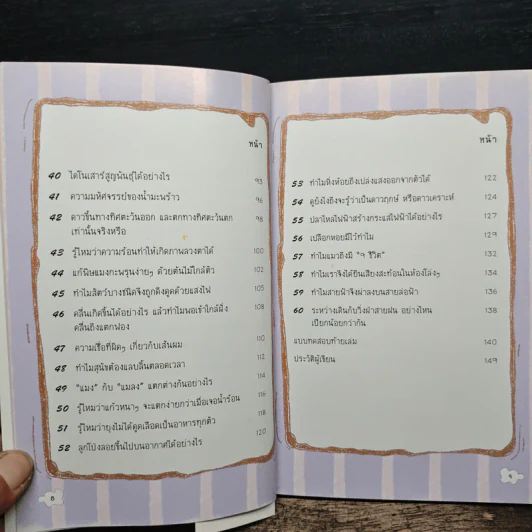 หน้า
40 ไดโนเสาร์สูญพันธุ์ได้อย่างไร 93
41 ความมหัศจรรย์ของน้ำมะพร้าว 96
42 ดาวขึ้นทางทิศตะวันออก และตกทางทิศตะวันตก 98
เท่านั้นจริงหรือ
43 รู้ไหมว่าความร้อนทำให้เกิดภาพลวงตาได้ 100
44 แก้พิษแมงกะพรุนง่ายๆ ด้วยต้นไม้ใกล้ตัว 102
45 ทำไมสัตว์บางชนิดจึงถูกดึงดูดด้วยแสงไฟ 105
46 คลื่นเกิดขึ้นได้อย่างไร แล้วทำไมพอเข้าใกล้ฝั่ง 108
คลื่นถึงแตกฟอง
47 ความเชื่อที่ผิดๆ เกี่ยวกับเส้นผม 110
48 ทำไมสุนัขต้องแลบลิ้นตลอดเวลา 112
49 "แมง" กับ "แมลง" แตกต่างกันอย่างไร 114
50 รู้ไหมว่าแก้วหนาๆ จะแตกง่ายกว่าเมื่อเจอน้ำร้อน 116
51 รู้ไหมว่ายุงไม่ได้ดูดเลือดเป็นอาหารทุกตัว 118
52 ลูกโป่งลอยขึ้นไปบนอากาศได้อย่างไร 120
หน้า
53 ทำไมหิ่งห้อยถึงเปล่งแสงออกจากตัวได้ 122
54 ดูยังไงถึงจะรู้ว่าเป็นดาวฤกษ์ หรือดาวเคราะห์ 124
55 ปลาไหลไฟฟ้าสร้างกระแสไฟฟ้าได้อย่างไร 127
56 เปลือกหอยมีไว้ทำไม 129
57 ทำไมแมวถึงมี "9 ชีวิต" 132
58 ทำไมเราจึงได้ยินเสียงสะท้อนในห้องโล่งๆ 134
59 ทำไมสายฟ้าจึงผ่าลงบนสายล่อฟ้า 136
60 ระหว่างเดินกับวิ่งฝ่าสายฝน อย่างไหน 138
เปียกน้อยกว่ากัน
แบบทดสอบท้ายเล่ม 140
ประวัติผู้เขียน 149